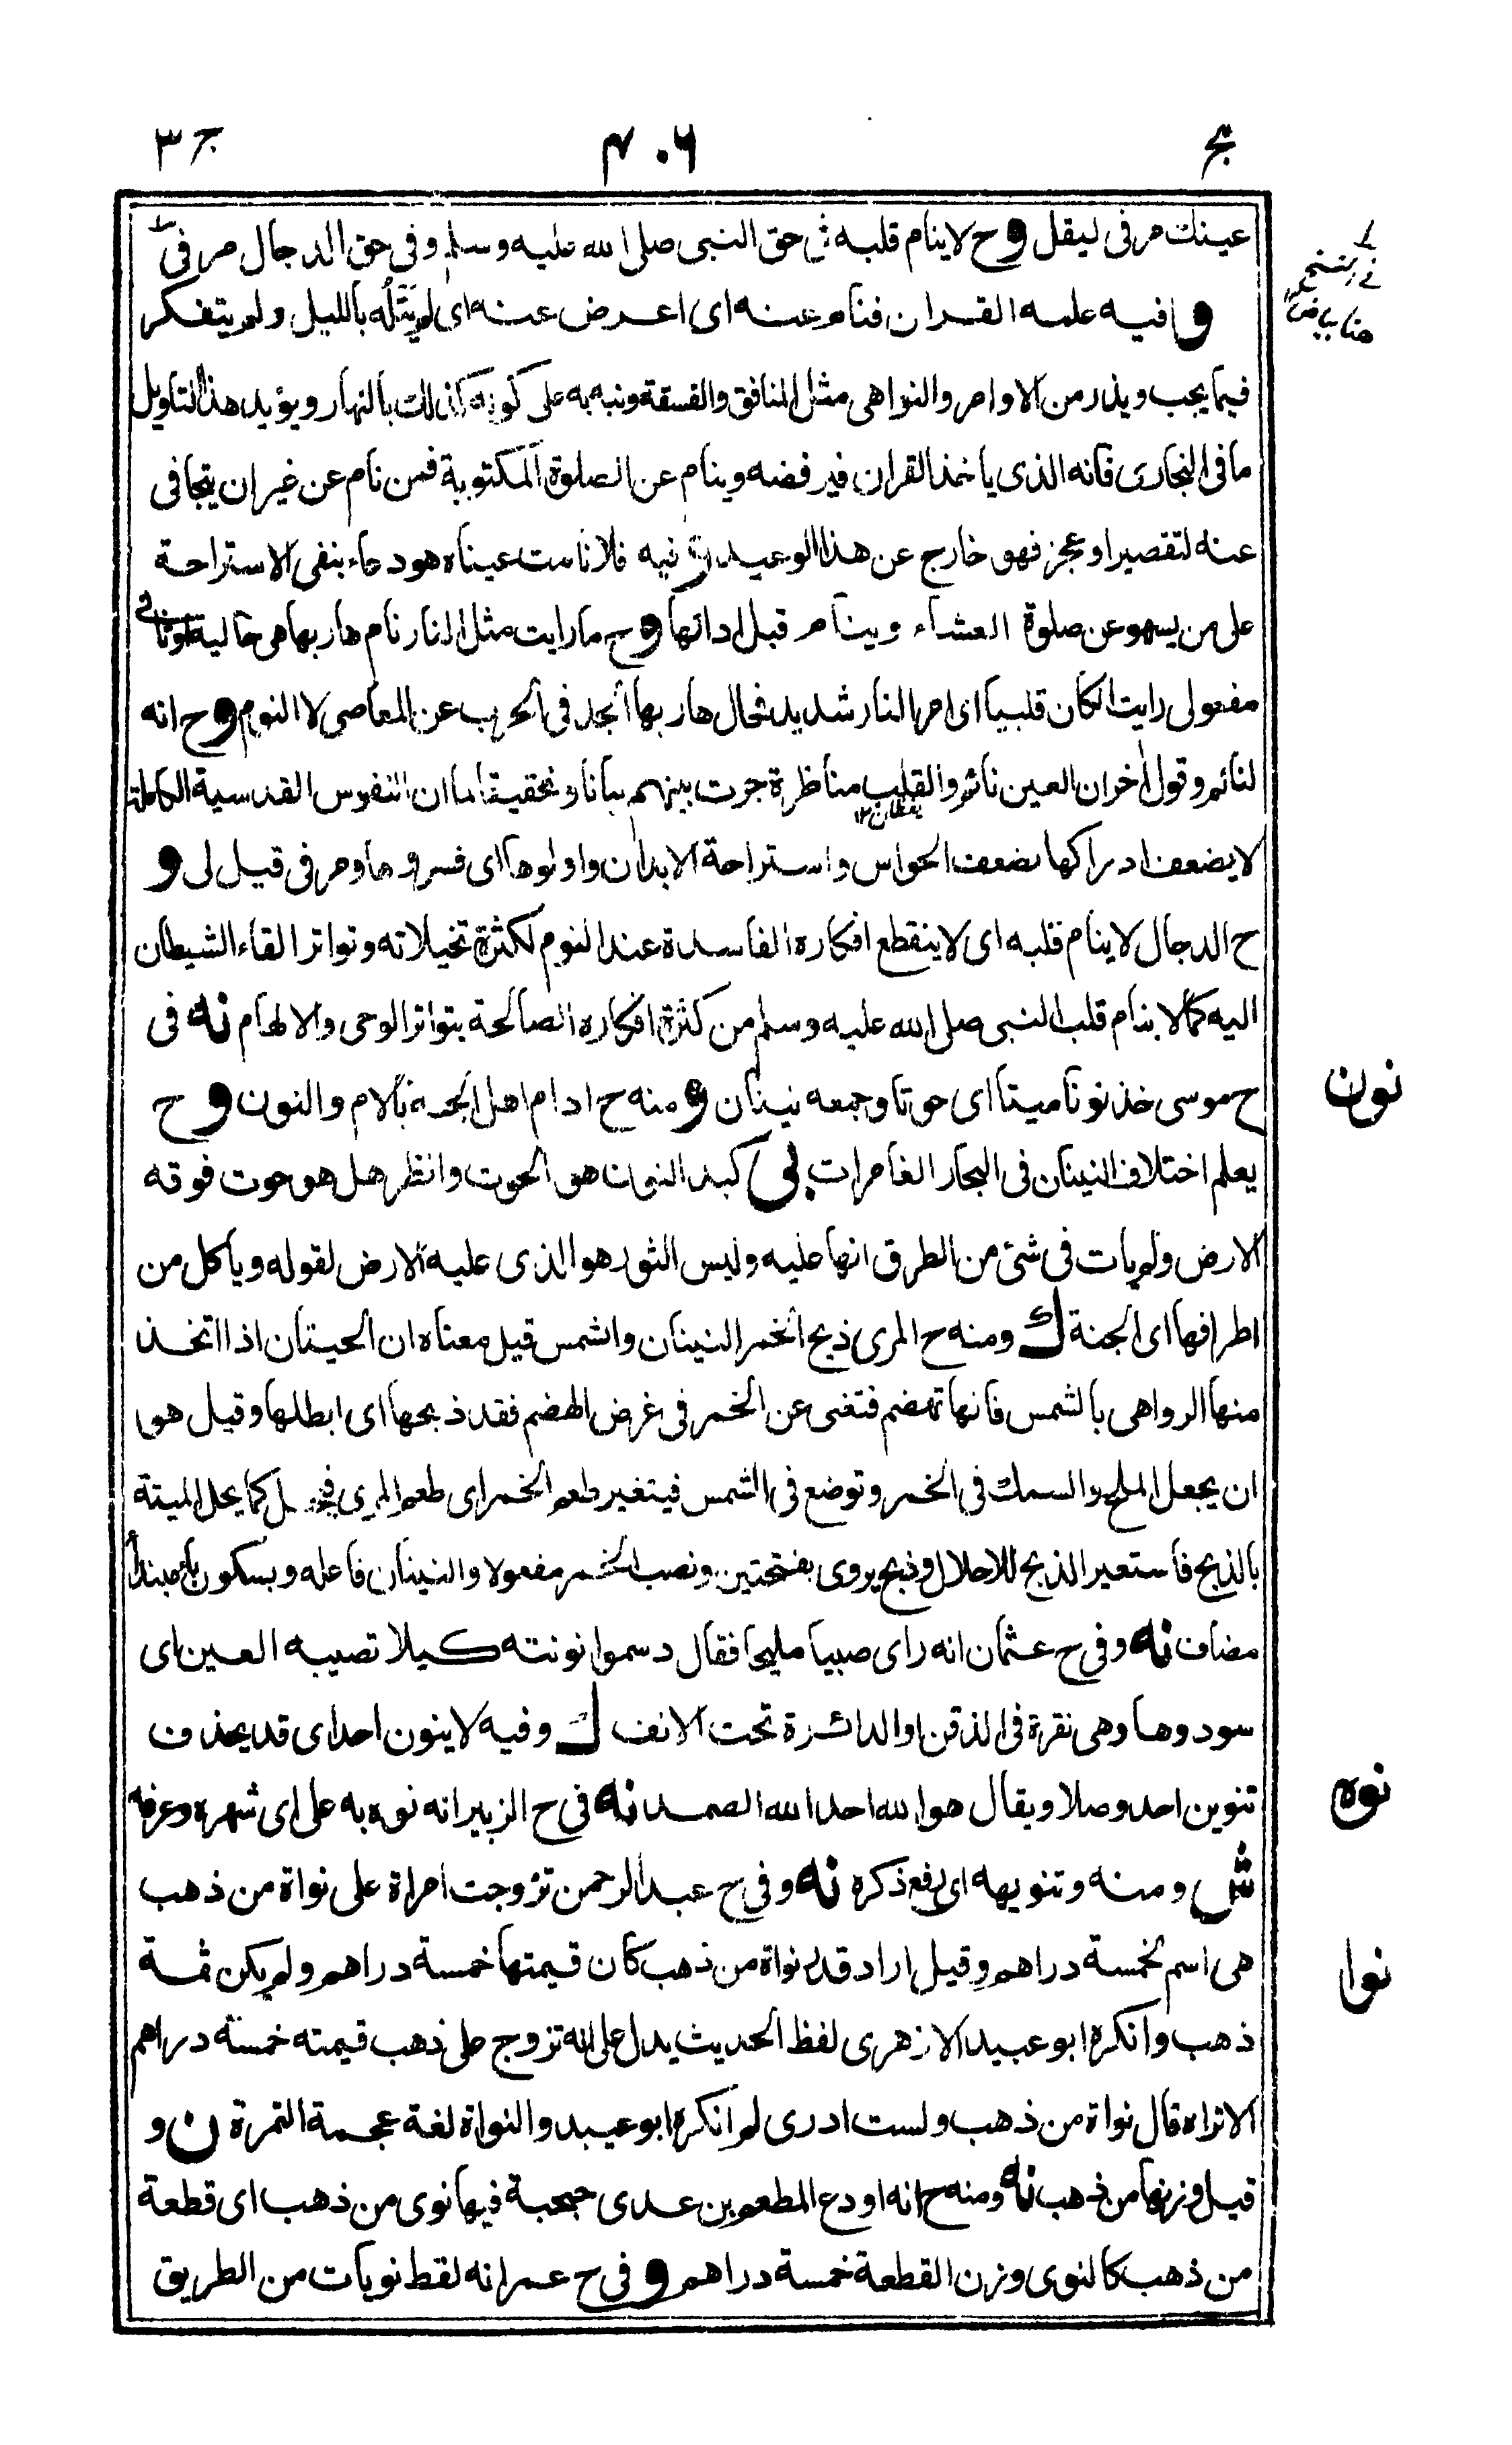 مج
٤٠٦
ج ٣
عينك مر فى ليقل و ح لا ينام قلبه ش حق النبى صلى الله عليه وسلم وفى حق الدجال مر فى
فى النسخ
هنا بياض
و فيه علمه القران فنام عنه اى اعرض عنه اى لم يَتْلُه بالليل ولم يتفكر
فيما يجب ويذر من الاوامر والنواهى مثل المنافق والفسقة ونبه به على كونه كذلك بالنهار ويؤيد هذا التاويل
ما فى البخارى فانه الذى ياخذ القران فيرفضه وينام عن الصلوة المكتوبة فمن نام عن غير ان يتجافى
عنه لتقصير او عجز فهو خارج عن هذا الوعيد فيه فلا نامت عيناه هو دعاء بنفى الاستراحة
على من يسهو عن صلوة العشاء وينام قبل ادائها و ح ما رايت مثل النار نام هاربها هى حالية او ثانى
مفعولى رايت ان كان قلبيا اى امر النار شديد فحال هاربها الجد فى الهرب عن المعاصى لا النوم و ح انه
لنائم وقول اخر ان العين نائم والقلب مناظرة جرت بينهم بيانا وتحقيقا لما ان النفوس القدسية الكاملة
يقظان ١٢
لا يضعف ادراكها بضعف الحواس واستراحة الابدان واولوها اى فسروها ومر فى قيل لى و
ح الدجال لا ينام قلبه اى لا ينقطع افكاره الفاسدة عند النوم لكثرة تخيلاته وتواتر القاء الشيطان
اليه كما لا ينام قلب النبى صلى الله عليه وسلم من كثرة افكاره الصالحة بتواتر الوحى والالهام نه فى
نون
ح موسى خذ نونا ميتا اى حوتا وجمعه نينان و منه ح ادام اهل الجنة بالام والنون و ح
يعلم اختلاف النينان فى البحار الغامرات بى كبد النون هو الحوت وانظر هل هو حوت فوقه
الارض ولم يات فى شئ من الطرق انها عليه وليس الثور هو الذى عليه الارض لقوله وياكل من
اطرافها اى الجنة ك ومنه ح المرى ذبح الخمر النينان والشمس قيل معناه ان الحيتان اذا اتخذ
منها الرواهى بالشمس فانها تهضم فتغنى عن الخمر فى غرض الهضم فقد ذبحها اى ابطلها وقيل هو
ان يجعل الملح والسمك فى الخمر وتوضع فى الشمس فيتغير طعم الخمر اى طعم المرى كما يحل الميتة
بالذبح فاستعير الذبح للاحلال وذبح يروى بفتحتين ونصب الخمر مفعولا والنينان فاعله وبسكون باء مبتدأ
مضاف نه وفى ح عثمان انه راى صبيا مليحا فقال دسموا نونته كيلا تصيبه العين اى
سودوها وهى نقرة فى الذقن او الدائرة تحت الانف ك وفيه لا ينون احد اى قد يحذف
نوه
تنوين احد وصلا ويقال هو الله احد الله الصمد نه فى ح الزبير انه نوه به على اى شهره وعرفه
ش ومنه وتنويهه اى رفع ذكره نه وفى ح عبد الرحمن تزوجت امراة على نواة من ذهب
نوا
هى اسم لخمسة دراهم وقيل اراد قدر نواة من ذهب كان قيمتها خمسة دراهم ولم يكن ثمة
ذهب وانكره ابو عبيد الازهرى لفظ الحديث يدل على انه تزوج على ذهب قيمته خمسة دراهم
الا تراه قال نواة من ذهب ولست ادرى لم انكره ابو عبيد والنواة لغة عجمة التمرة ن و
قيل وزنها من ذهب نه ومنه ح انه اودع المطعم بن عدى جبجبة فيها نوى من ذهب اى قطعة
من ذهب كالنوى وزن القطعة خمسة دراهم و فى ح عمر انه لقط نويات من الطريق